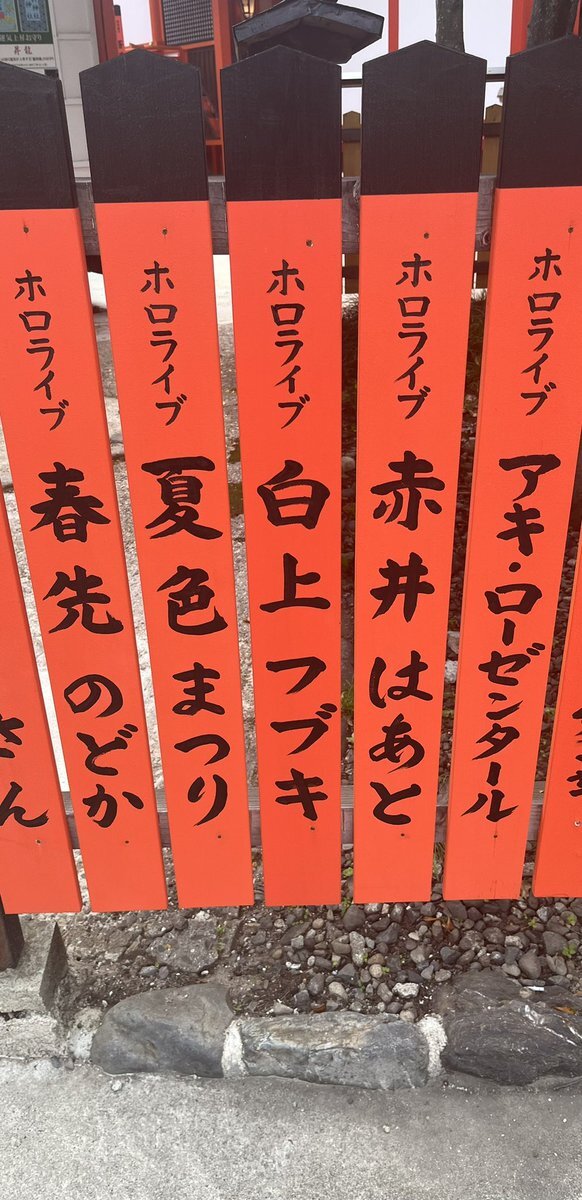 ホロライブ アキ・ローゼンタール
ホロライブ 赤井はあと
ホロライブ 白上フブキ
ホロライブ 夏色まつり
ホロライブ 春先のどか
さん
昇龍